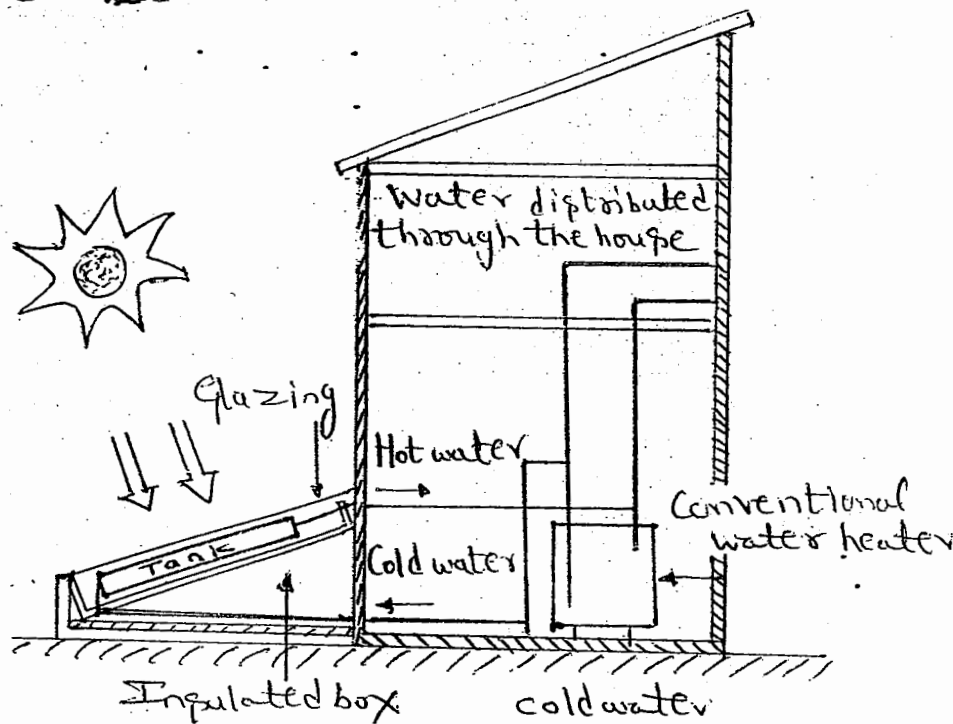 Water distributed
through the house
Glazing
Hot water
Conventional
water heater
Tank
Cold water
Insulated box
cold water